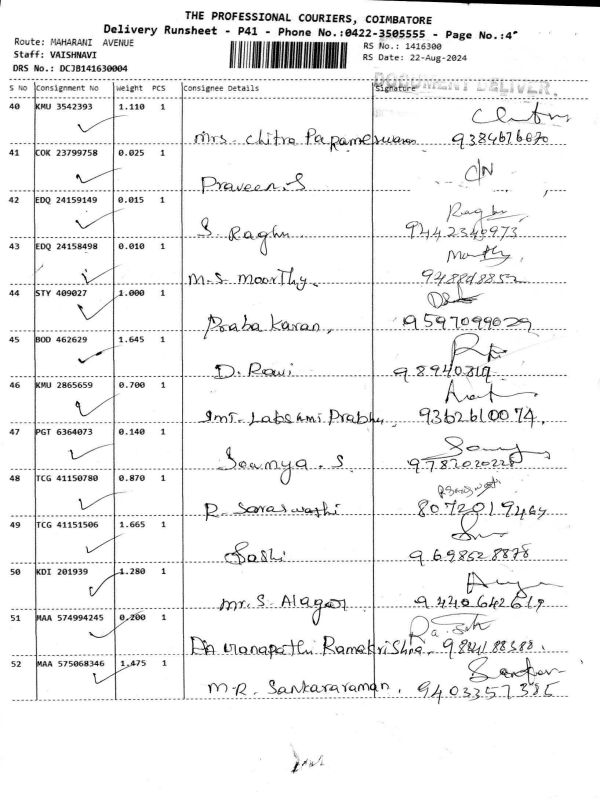 THE PROFESSIONAL COURIERS, COIMBATORE
Delivery Runsheet - P41 - Phone No.:0422-3505555 - Page No.:4
Route: MAHARANI AVENUE
RS No.: 1416300
Staff: VAISHNAVI
RS Date: 22-Aug-2024
DRS No.: DCJB141630004
DOCUMENT DELIVER.
S No Consignment No Weight PCS Consignee Details Signature
40 KMU 3542393 1.110 1
Mrs. Chitra Parameswaran
41 COK 23799758 0.025 1 C/N
Praveen.S
42 EDQ 24159149 0.015 1 Raghu
S. Raghu 9442349973
43 EDQ 24158498 0.010 1 Moorthy
M.S. Moorthy.
44 STY 409027 1.000 1
Praba Karan, 9597099029
45 BOD 462629 1.645 1
D. Ravi 98940819
46 KMU 2865659 0.700 1
Smt. Lakshmi Prabhu, 9362610074.
47 PGT 6364073 0.140 1
Sowmya . S. 9787020228
48 TCG 41150780 0.870 1
R. Saraswathi
49 TCG 41151506 1.665 1
Sashi 9698528878
50 KDI 201939 1.280 1
Mr. S. Alagar 9440642619
51 MAA 574994245 0.200 1
Ramakrishna. 9884188388.
52 MAA 575068346 1.475 1
M.R. Sankararaman, 9403357385